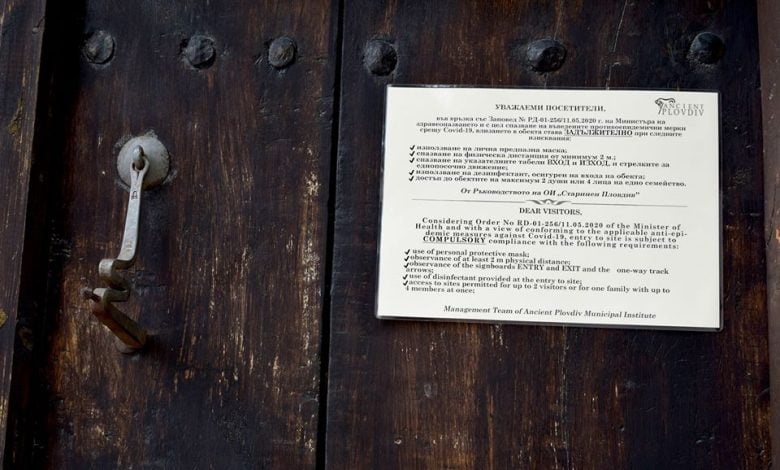 ANCIENT
PLOVDIV
УВАЖАЕМИ ПОСЕТИТЕЛИ,
във връзка със Заповед № РД-01-256/11.05.2020 г. на Министъра на
здравеопазването и с цел спазване на въведените противоепидемични мерки
срещу Covid-19, влизането в обекта става ЗАДЪЛЖИТЕЛНО при следните
изисквания:
✓използване на лична предпазна маска;
✓спазване на физическа дистанция от минимум 2 м.;
✓спазване на указателните табели ВХОД и ИЗХОД, и стрелките за
еднопосочно движение;
✓използване на дезинфектант, осигурен на входа на обекта;
✓достъп до обектите на максимум 2 души или 4 лица на едно семейство.
От Ръководството на ОИ „Старинен Пловдив"
DEAR VISITORS,
Considering Order No RD-01-256/11.05.2020 of the Minister of
Health and with a view of conforming to the applicable anti-epi-
demic measures against Covid-19, entry to site is subject to
COMPULSORY compliance with the following requirements:
✓use of personal protective mask;
✓observance of at least 2 m physical distance;
✓observance of the signboards ENTRY and EXIT and the one-way track
arrows;
✓use of disinfectant provided at the entry to site;
✓access to sites permitted for up to 2 visitors or for one family with up to
4 members at once;
Management Team of Ancient Plovdiv Municipal Institute